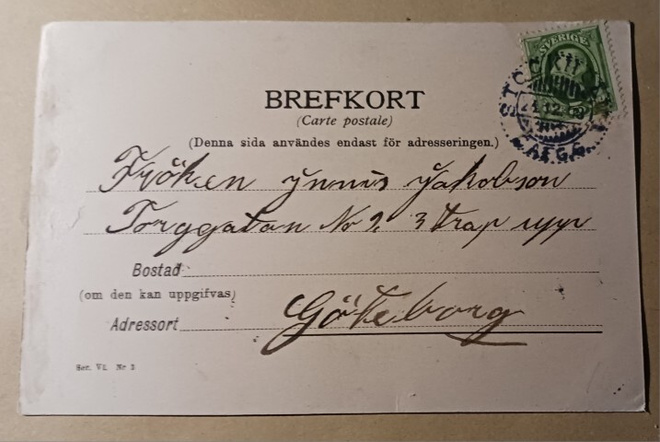 SVERIGE
STOCKH
BREFKORT
(Carte postale)
(Denna sida användes endast för adresseringen.)
Fröken Jakobson
Torggatan No 9, 3 trap upp
Bostad
(om den kan uppgifvas)
Göteborg
Adressort
Ser. VI. Nr 3